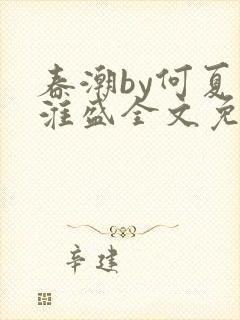 春潮by何夏
淮盛全文免
辛建